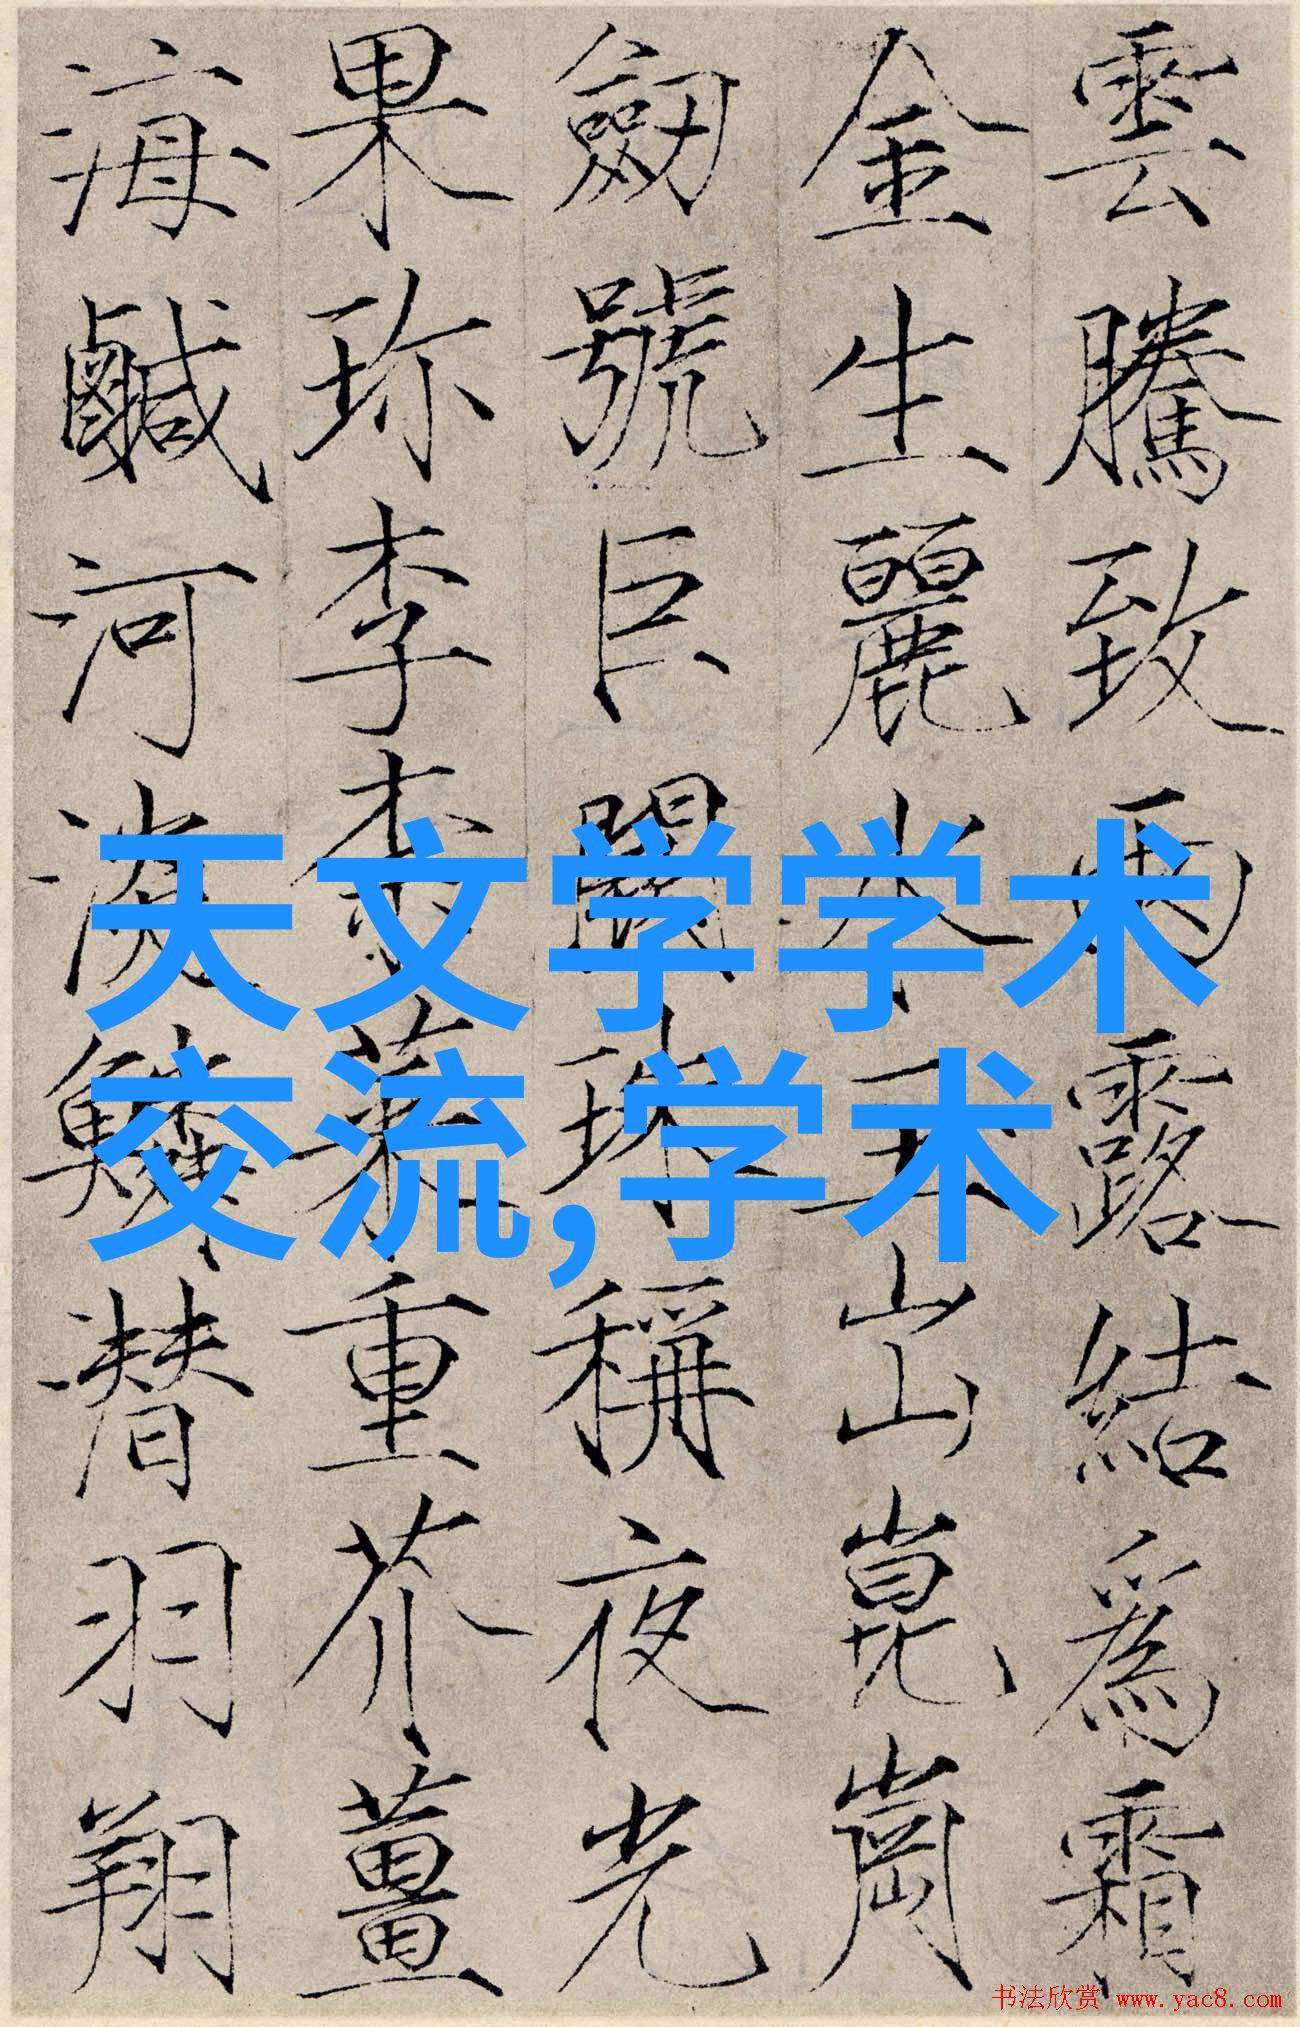 雲騰致雨露結爲霜
金生麗水玉出崑崗
劒號巨闕珠稱夜光
果珎李柰菜重芥薑
海鹹河淡鱗潜羽翔
天文学学术
交流,学术
书法欣赏 www.yac8.com